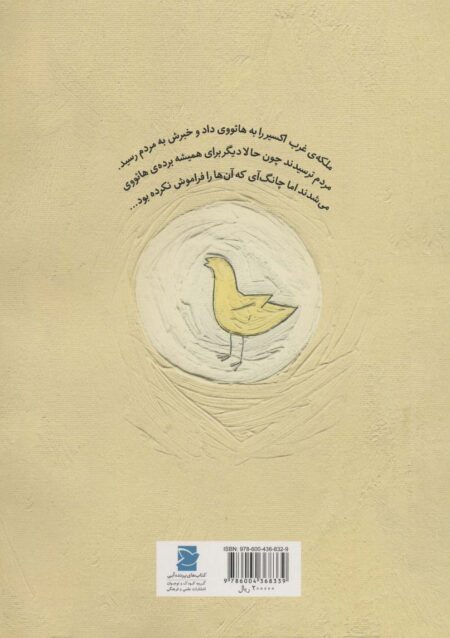 ملکه‌ی غرب اکسیر را به هائووی داد و خبرش به مردم رسید.
مردم ترسیدند چون حالا دیگر برای همیشه برده‌ی هائووی
می‌شدند اما چانگ‌آی که آن‌ها را فراموش نکرده بود...
ISBN: 978-600-436-832-9
9786004368339
۲۰۰۰۰۰ ریال
کتاب‌های پرنده‌آبی
گروه کودک و نوجوان
انتشارات علمی و فرهنگی